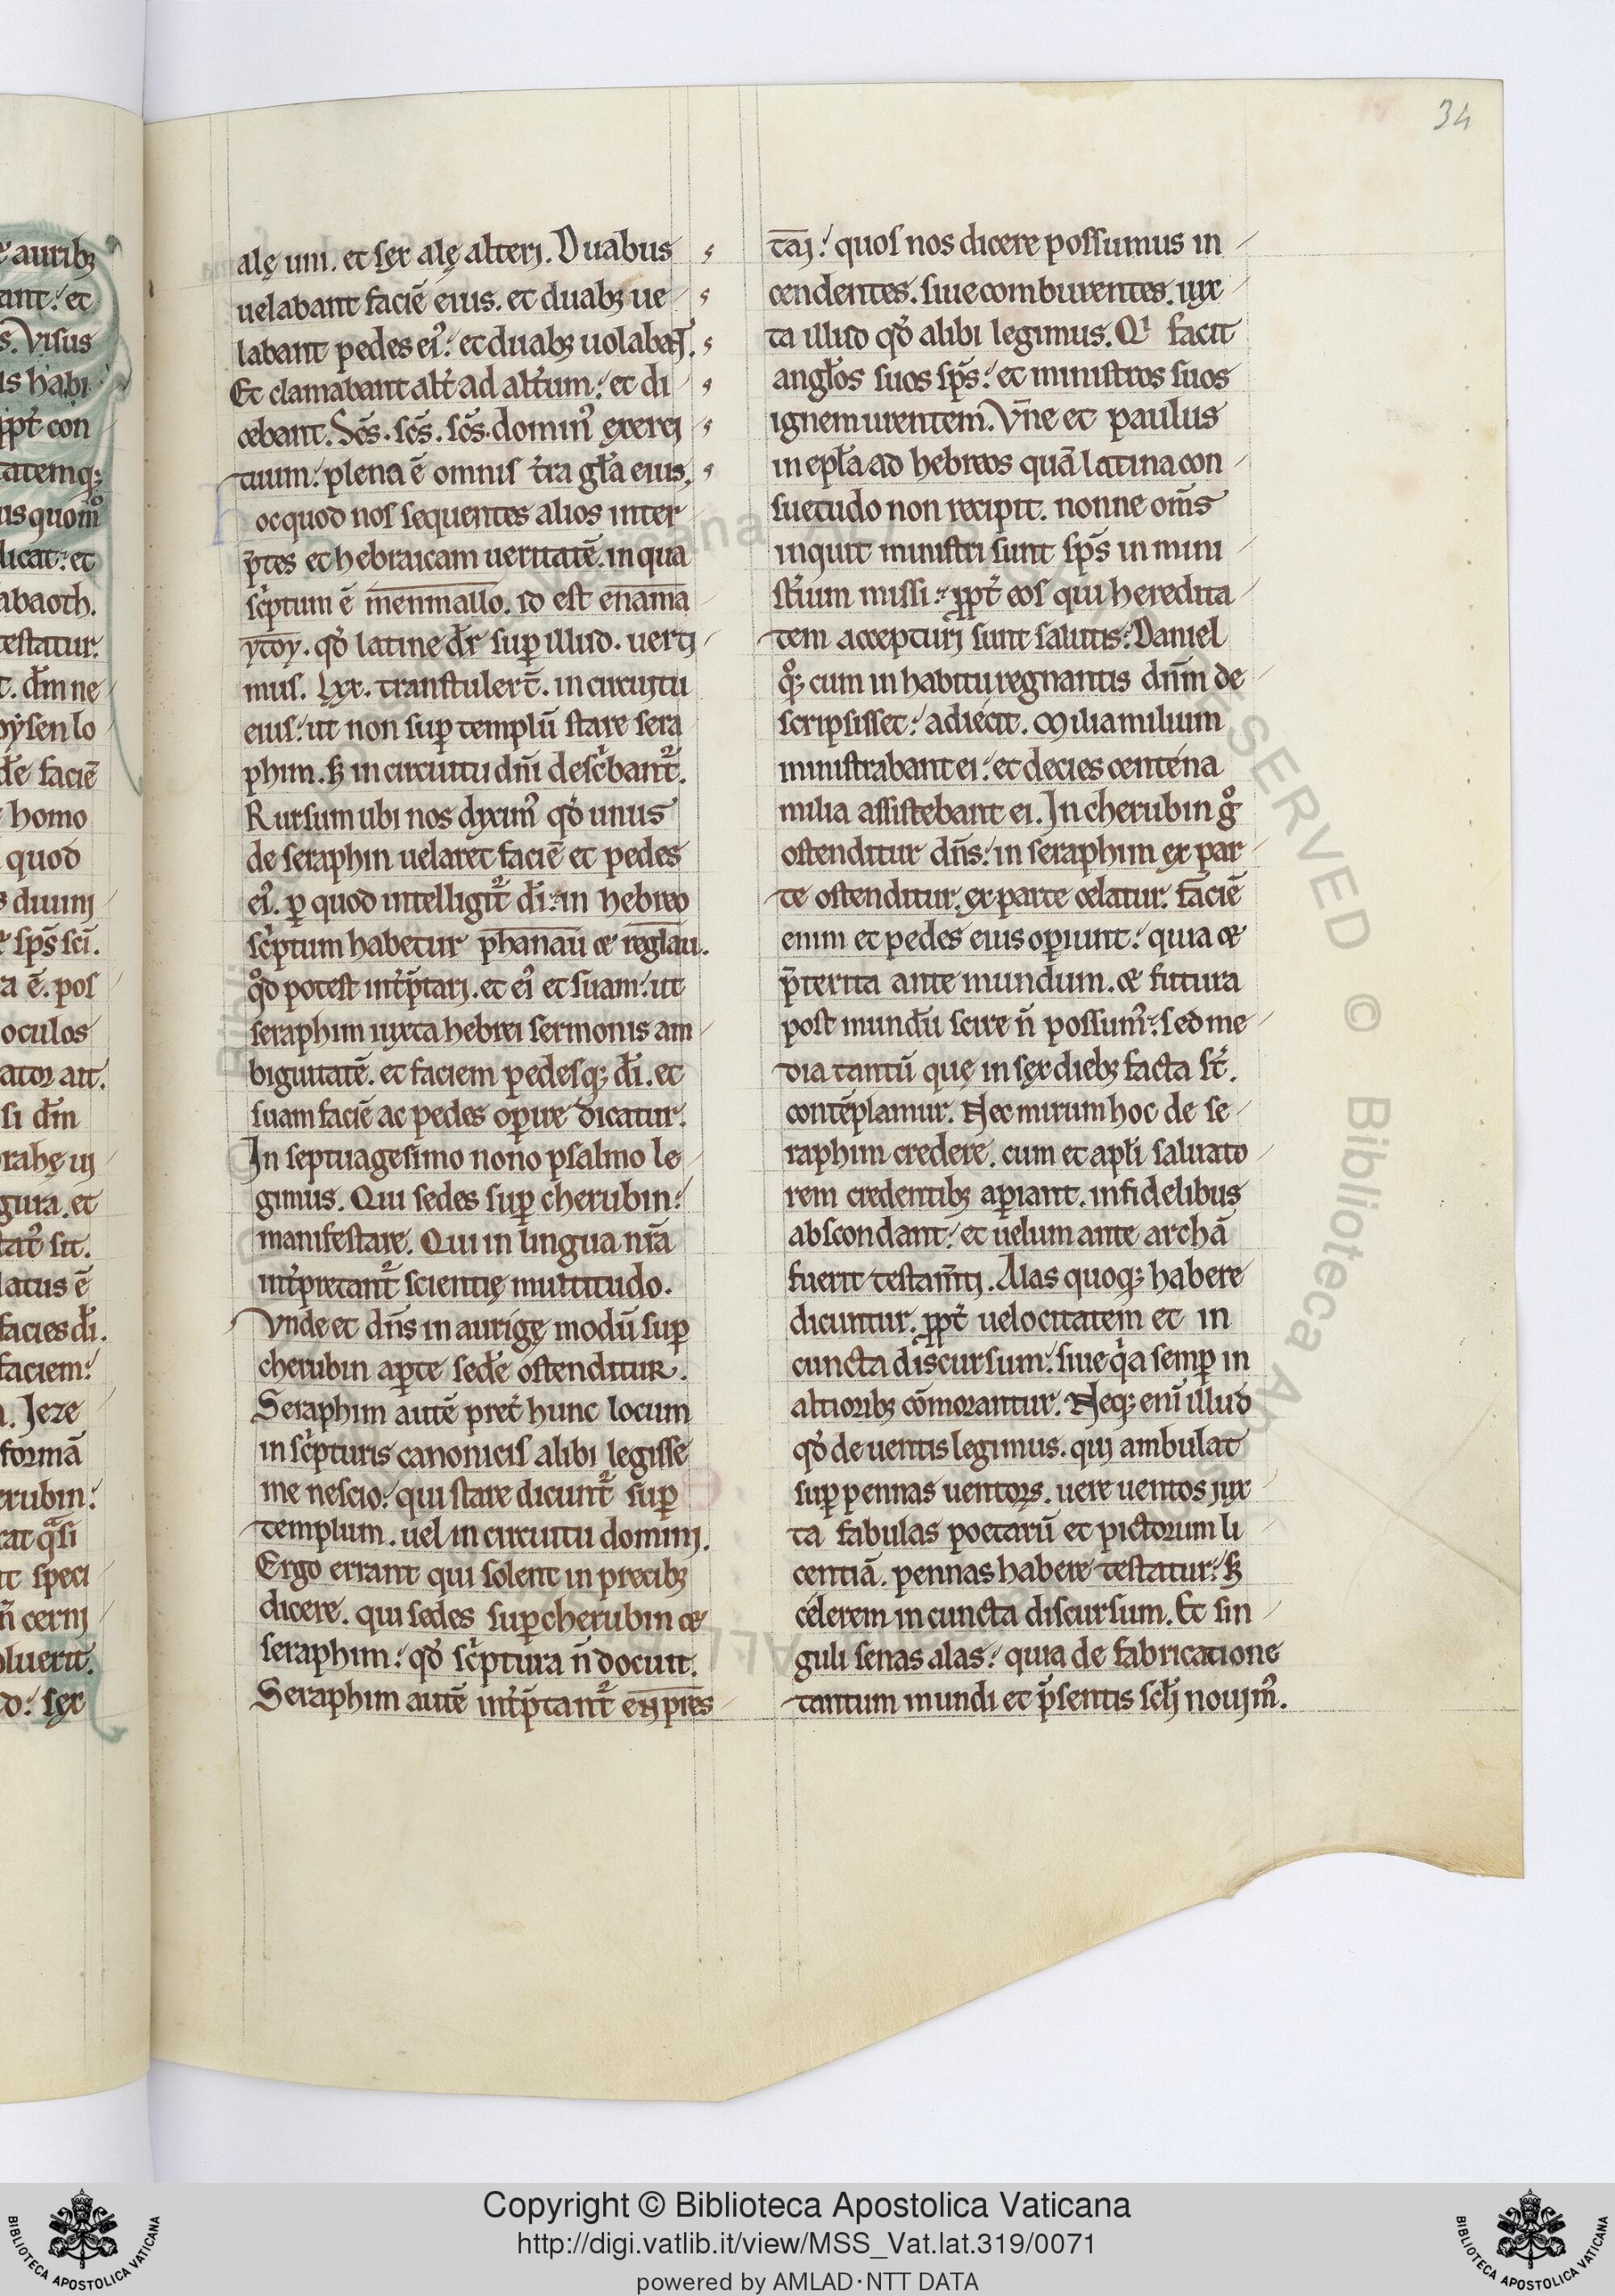 34
alę uni. et sęx alę alterj. Duabus
uelabant faciē eius. et duabꝫ ue
labant pedes ei᷒. et duabꝫ uolabāt.
Et clamabant alt̄ ad alt̄um. et di
cebant. Sc̄s. sc̄s. sc̄s. domin᷒ exercj
tuum. plena ē omnis t̄ra gl̄a eius.
oc quod nos sequentes alios inter
p̄tes et hebraicam ueritatē. in qua
sc͛ptum ē menmallo. id est enama
ytoy. qđ latine dr̄ suꝑ illud. uertj
mus. Lxx. transtuler̄t. in circuitu
eius. ut non suꝑ templū stare sera
phim. sꝫ in circuitu dn̄i desc͛bant᷑.
Rursum ubi nos dyxim᷒ qđ unus
de seraphin uelaret faciē et pedes
ei᷒. ꝑ quod intelligit᷑ dī. in hebreo
sc͛ptum habetur phanau et reglau.
qđ potest int̄p̄tarj. et ei᷒ et suam. ut
seraphim iuxta hebrei sermonis am
biguitatē. et faciem pedesqꝫ dī. et
suam faciē ac pedes oꝑire dicatur.
In septuagesimo nono psalmo le
gimus. Qui sedes suꝑ cherubin.
manifestare. Qui in lingua nr̄a
int̄pretant᷑ scientię multitudo.
Vnde et dn̄s in aurigę modū suꝑ
cherubin aꝑte sedē ostenditur.
Seraphim autē pret̄ hunc locum
in sc͛pturis canonicis alibi legisse
me nescio. qui stare dicunt᷑ suꝑ
templum. uel in circuitu dominj.
Ergo errant qui solent in precibꝫ
dicere. qui sedes suꝑ cherubin et
seraphim. qđ sc͛ptura n̄ docuit.
Seraphim autē int̄p̄tant᷑ enpres
tāj. quos nos dicere possumus in
cendentes. siue comburentes. iux
ta illud qđ alibi legimus. Qͥ facit
angl̄os suos sp̄s. et ministros suos
ignem urentem. Vn̄e et paulus
in epl̄a ad hebreos quā latina con
suetudo non recipit. nonne om̄s
inquit ministri sunt sp̄s in mini
st̄ium missi. ꝓpt̄ eos qui heredita
tem accepturj sunt salutis. Daniel
qͦꝫ cum in habitu regnantis dn̄m de
scripsisset. adiecit. Milia milium
ministrabant ei. et decies centena
milia assistebant ei. In cherubin gͦ
ostenditur dn̄s. in seraphim ex par
te ostenditur. ex parte celatur. faciē
enim et pedes eius oꝑiunt. quia et
p̄terita ante mundum. et futura
post mundū scire n̄ possum᷒. sed me
dia tantū quę in sęx diebꝫ facta st̄.
contēplamur. Nec mirum hoc de se
raphim credere. cum et apl̄i saluato
rem credentibꝫ aꝑiant. infidelibus
abscondant. et uelum ante archā
fuerit testam̄tj. Alas quoqꝫ habere
dicuntur. ꝓpt̄ uelocitatem et in
cuncta discursum. siue qͣa semꝑ in
altioribꝫ cōmorantur. Neqꝫ enī illud
qđ de uentis legimus. quj ambulat
suꝑ pennas uentoꝝ. uere uentos jux
ta fabulas poetarū et pictorum li
centiā. pennas habere testatur. sꝫ
celerem in cuncta discursum. Et sin
guli senas alas. quia de fabricatione
tantum mundi et p͛sentis scl̄j nouim᷒.
Copyright © Biblioteca Apostolica Vaticana
http://digi.vatlib.it/view/MSS_Vat.lat.319/0071
powered by AMLAD·NTT DATA
BIBLIOTECA APOSTOLICA VATICANA
BIBLIOTECA APOSTOLICA VATICANA